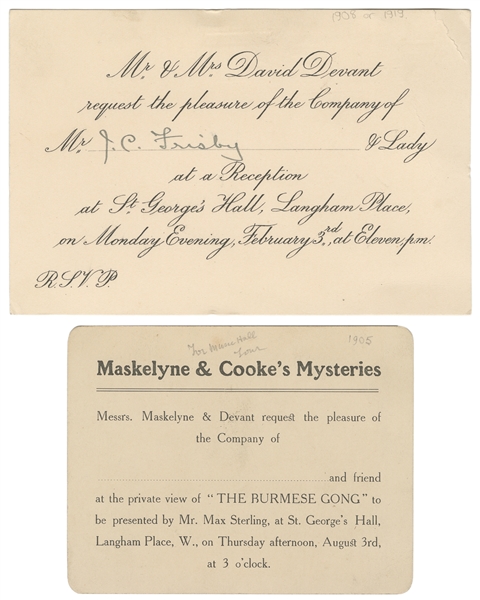 1908 or 1919
Mr. & Mrs. David Devant
request the pleasure of the Company of
Mr. J. C. Frisby & Lady
at a Reception
at St. George's Hall, Langham Place,
on Monday Evening, February 3rd., at Eleven p.m.
R.S.V.P.
For Music Hall
1905
Maskelyne & Cooke's Mysteries
Messrs. Maskelyne & Devant request the pleasure of
the Company of
and friend
at the private view of "THE BURMESE GONG" to
be presented by Mr. Max Sterling, at St. George's Hall,
Langham Place, W., on Thursday afternoon, August 3rd,
at 3 o'clock.